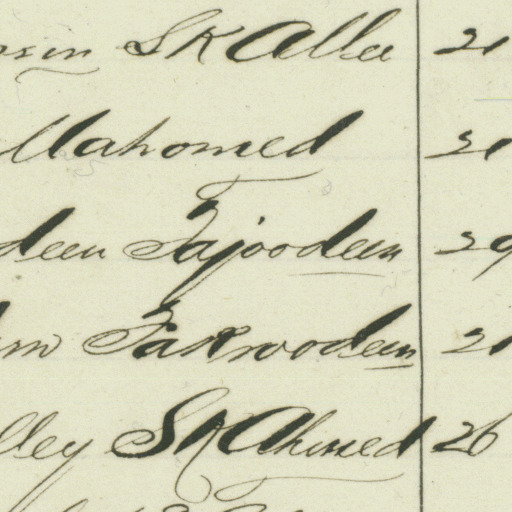 SK Allee 21
Mahomed 31
deen Tajoodeen 29
Fakroodeen 21
lley SK Ahmed 26